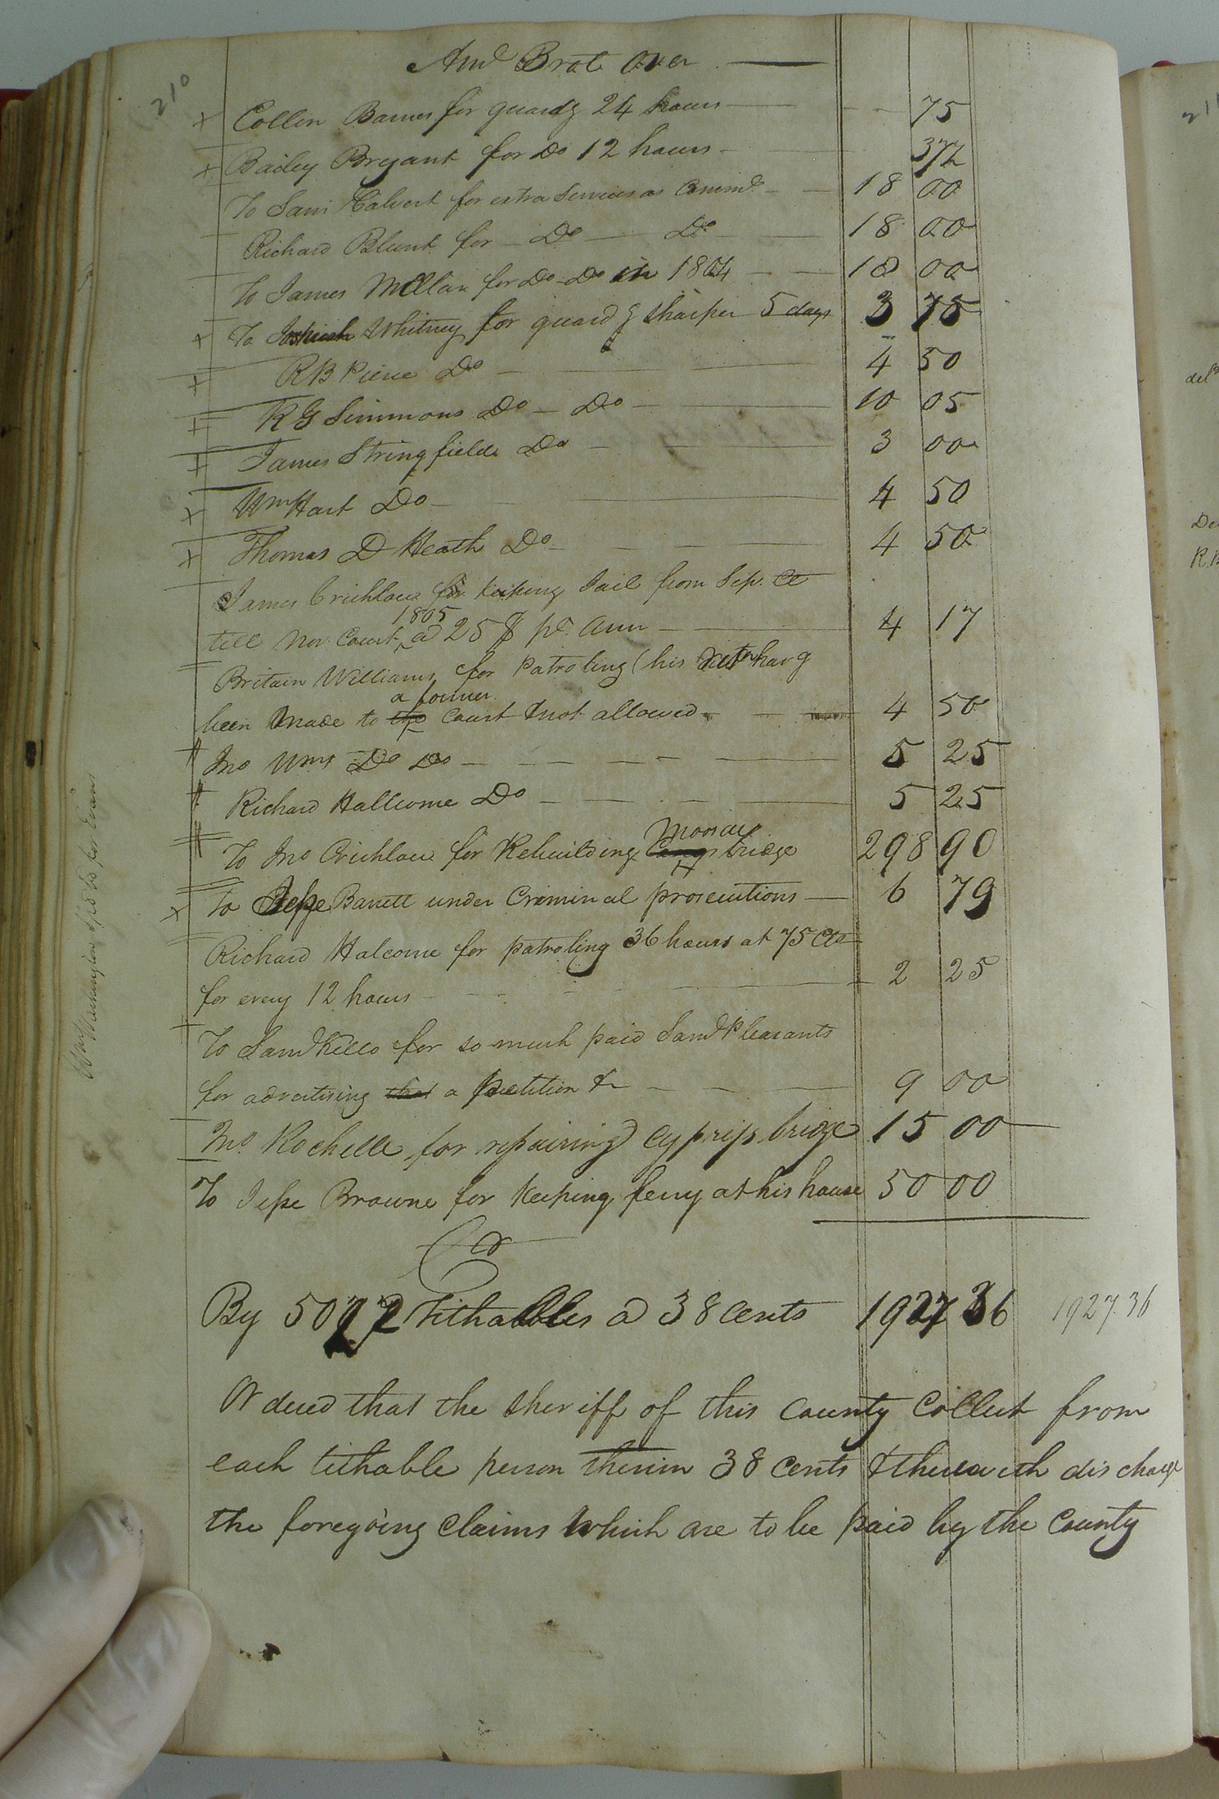 210
Amt Brot Over
Collin Barnes for guardg 24 hours 75
Bailey Bryant for Do 12 hours 37½
To Sam Calvert for extra Services as Commr 18 00
Richard Blunt for Do Do 18 00
To James McClan for Do Do in 1804 18 00
To Whitney for guardg Sharper 5 days 3 75
R B Pierce Do 4 50
R G Simmons Do Do 10 05
James Stringfield Do 3 00
Wm Hart Do 4 50
Thomas D Heath Do 4 50
James Crichlow for keeping Jail from Sep. Ct
till Nov. Court 1805 @ 25 $ pr. Ann 4 17
Britain Williams for patroling (his havg
been made to the a former Court & not allowed 4 50
Jno Wms Do Do 5 25
Richard Hallcome Do 5 25
To Jno Crichlow for Rebuilding bridge 298 90
To Jesse Barrett under Criminal prosecutions 6 79
Richard Halcome for patroling 36 hours at 75 Cts
for every 12 hours 2 25
To Saml Kello for so much paid Saml Pleasants
for advertising that a Petition & 9 00
Jno Rochelle for repairing Cypress bridge 15 00
To Jesse Browne for keeping ferry at his house 50 00
Cr
By 5072 tithables @ 38 cents 1927 36 1927.36
Ordered that the sheriff of this County Collect from
each tithable person therein 38 cents & therewith discharge
the foregoing claims which are to be paid by the County